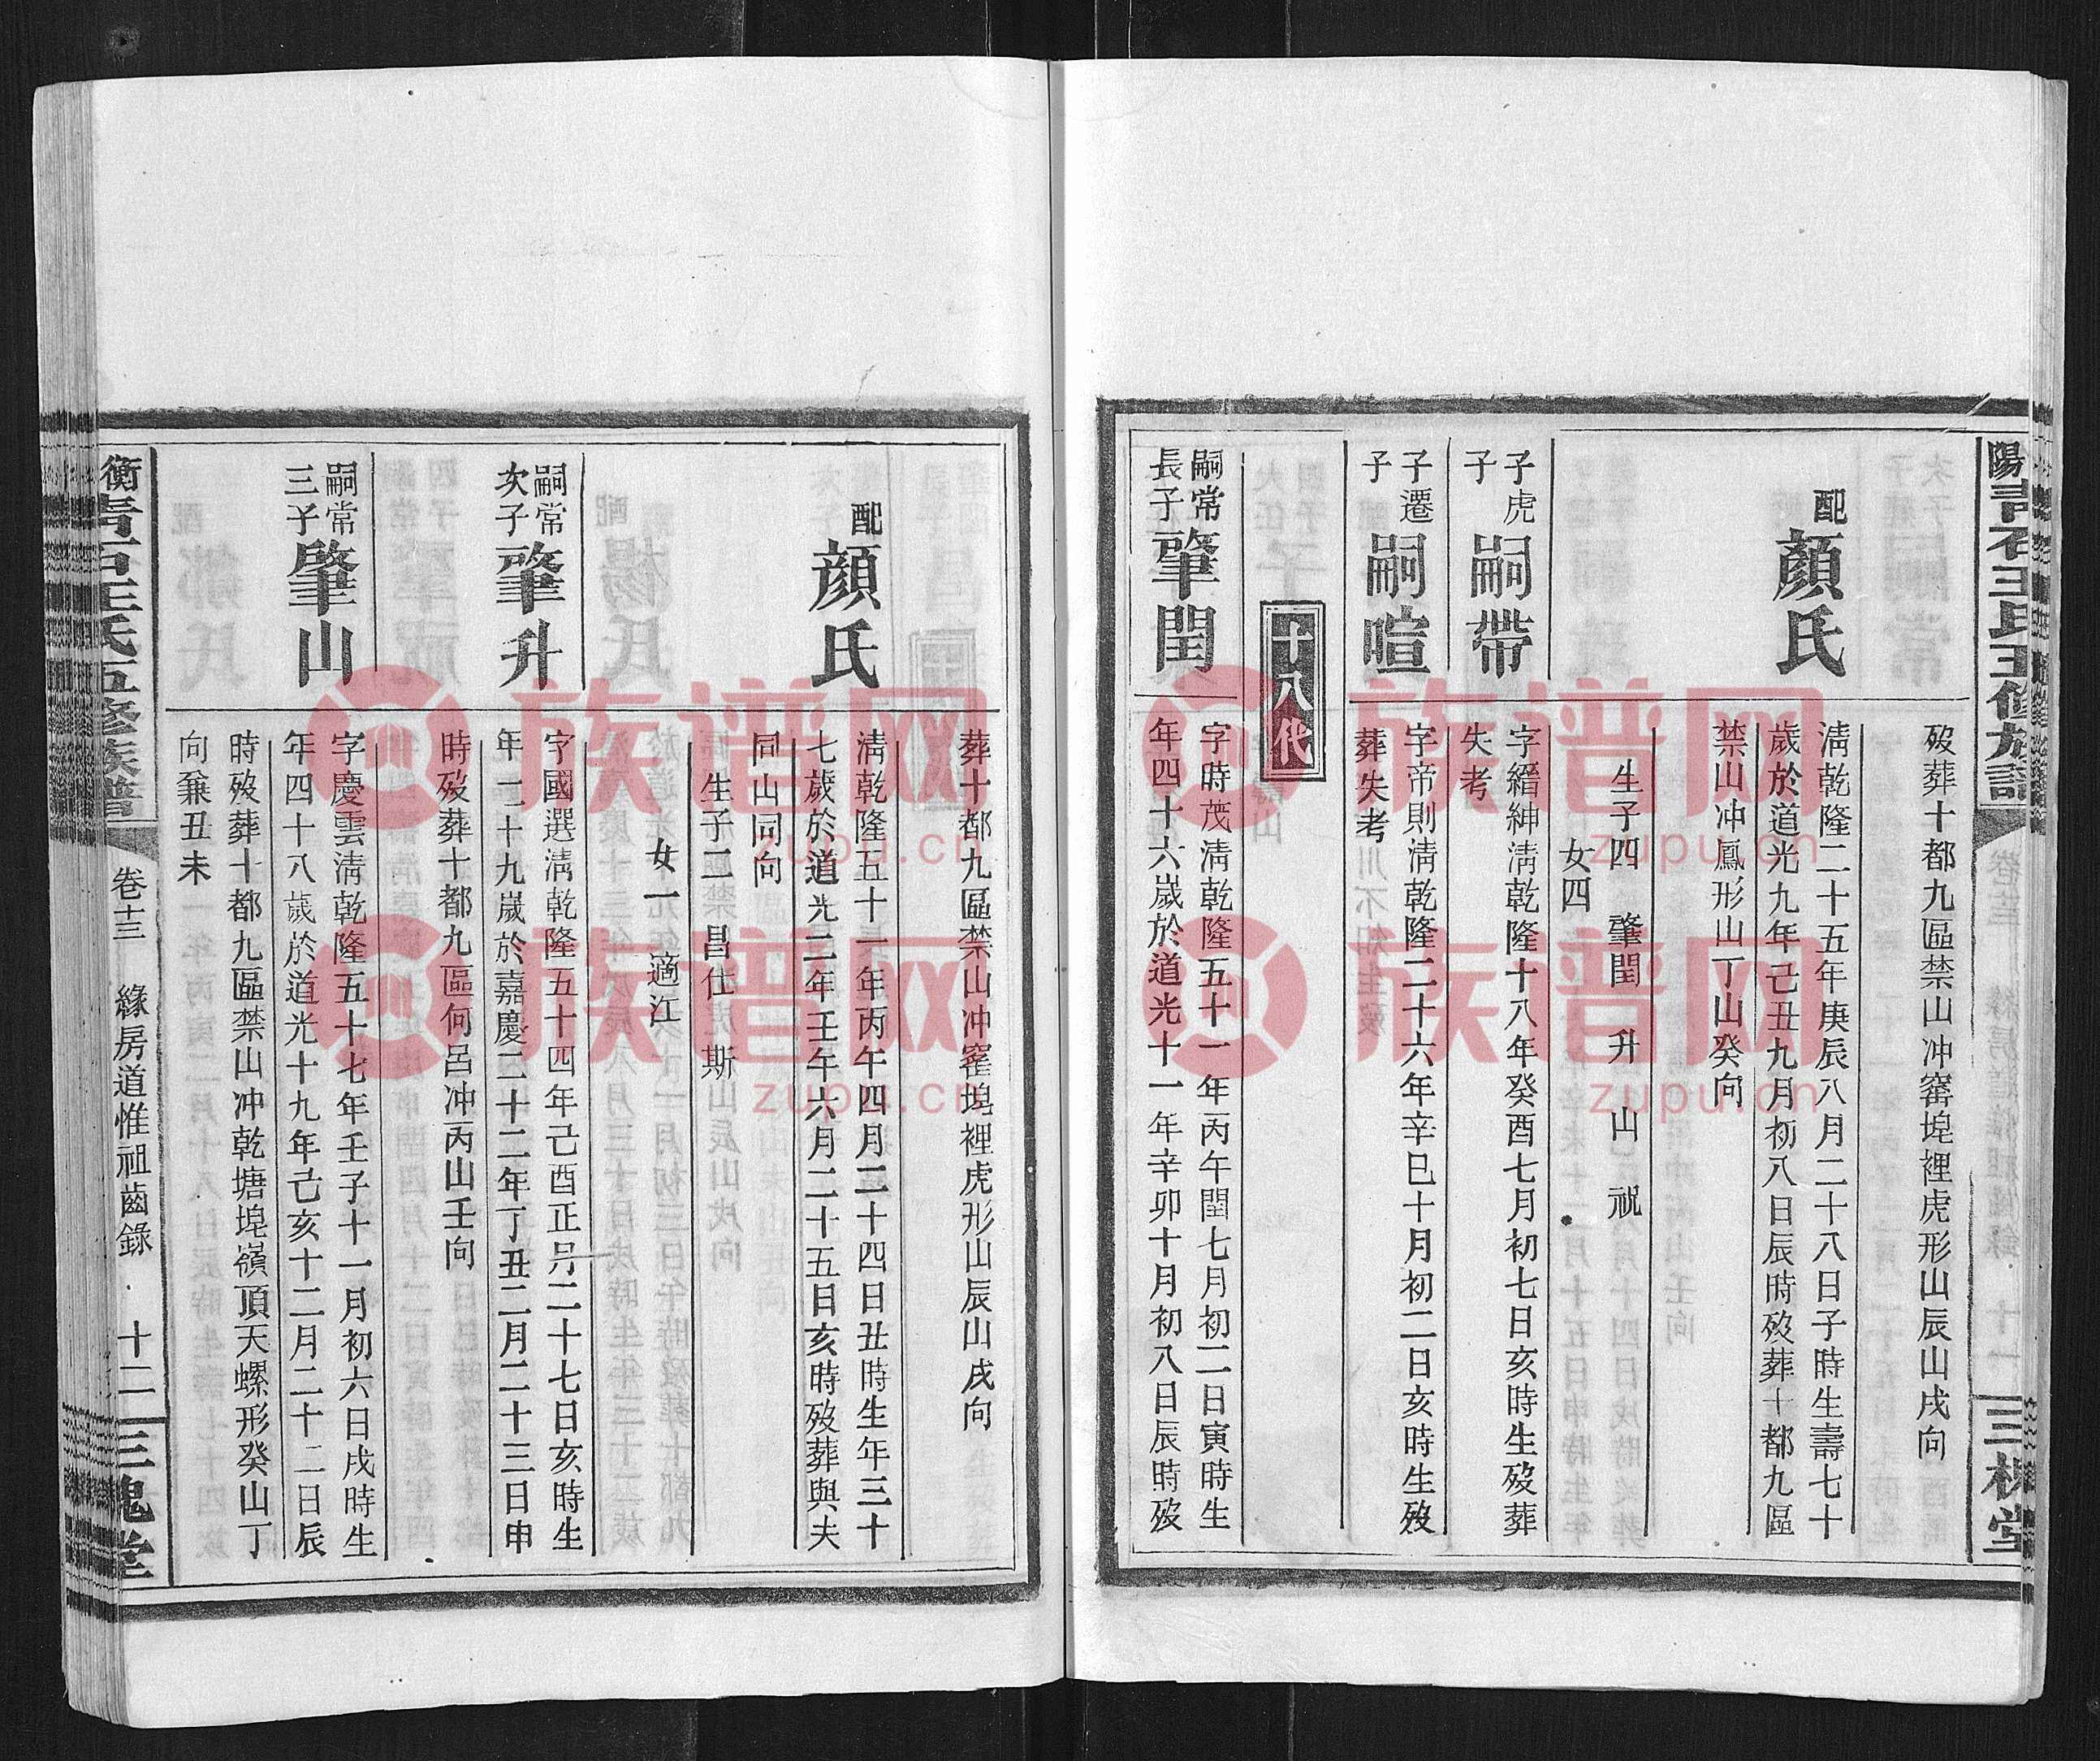 陽青石王氏五修族譜
三槐堂
歿葬十都九區禁山冲窰堒裡虎形山辰山戌向
配
顏氏
淸乾隆二十五年庚辰八月二十八日子時生壽七十
歲於道光九年己丑九月初八日辰時歿葬十都九區
禁山冲鳳形山丁山癸向
生子四 肇閏 升 山 祝
女四
子虎
子
嗣帶
字縉紳淸乾隆十八年癸酉七月初七日亥時生歿葬
失考
子遷
子
嗣喧
字帝則淸乾隆二十六年辛巳十月初二日亥時生歿
葬失考
十八代
嗣常
長子
肇閏
字時茂淸乾隆五十一年丙午閏七月初二日寅時生
年四十六歲於道光十一年辛卯十月初八日辰時歿
葬十都九區禁山冲窰堒裡虎形山辰山戌向
配
顏氏
淸乾隆五十一年丙午四月二十四日丑時生年三十
七歲於道光二年壬午六月二十五日亥時歿葬與夫
同山同向
生子二 昌仕 斯
女一 適江
嗣常
次子
肇升
字國選淸乾隆五十四年己酉正月二十七日亥時生
年二十九歲於嘉慶二十二年丁丑二月二十三日申
時歿葬十都九區何呂冲丙山壬向
嗣常
三子
肇山
字慶雲淸乾隆五十七年壬子十一月初六日戌時生
年四十八歲於道光十九年己亥十二月二十二日辰
時歿葬十都九區禁山冲乾塘堒嶺頂天螺形癸山丁
向兼丑未
衡青石王氏五修族譜
卷十三 緣房道惟祖齒錄 十二
三槐堂
族谱网
zupu.cn
族谱网
zupu.cn
族谱网
zupu.cn
族谱网
zupu.cn